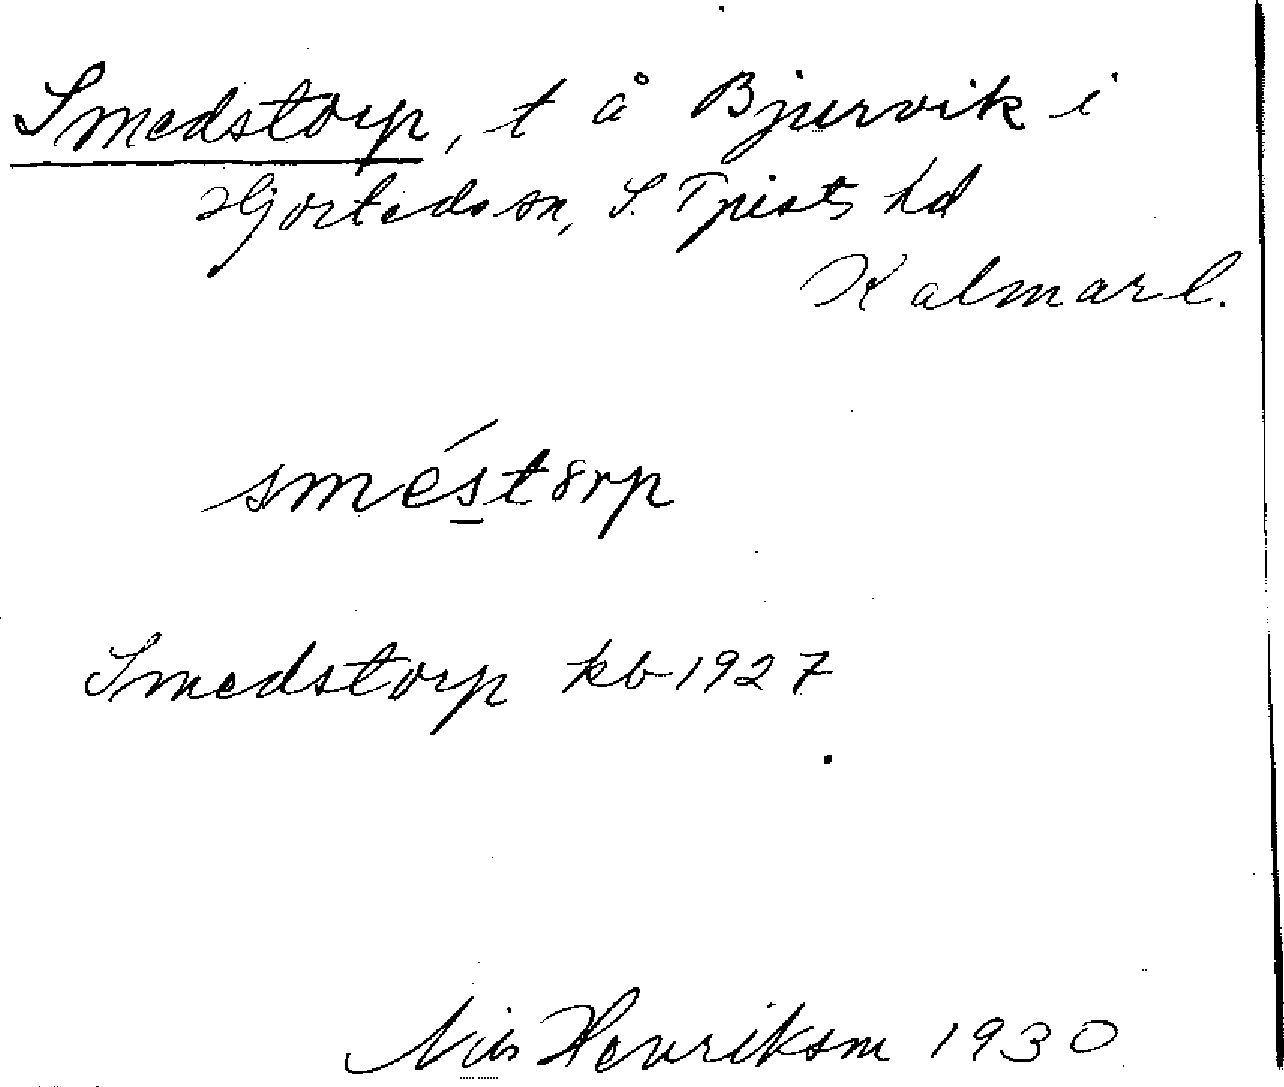 Smedstorp, t å Bjurvik i
Hjorteds sn, S. Tjusts hd
Kalmar l.
sméstȣrp
Smedstorp kb 1927
Nils Henriksson 1930